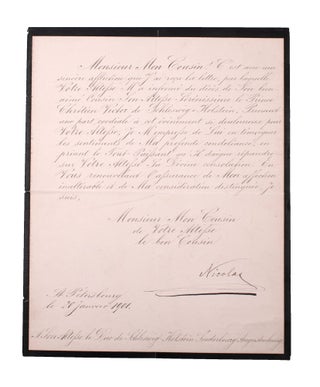 Monsieur Mon Cousin! C'est avec une
sincère affliction que J'ai reçu la lettre, par laquelle
Votre Altesse M'a informé du décès de Son bien
aimé Cousin Son Altesse Sérénissime le Prince
Chrétien Victor de Schleswig-Holstein. Prenant
une part cordiale à cet événement si douloureux pour
Votre Altesse, Je M'empresse de Lui en témoigner
les sentiments de Ma profonde condoléance, en
priant le Tout Puissant qu'Il daigne répandre
sur Votre Altesse Ses Divines consolations. En
Vous renouvelant l'assurance de Mon affection
inaltérable et de Ma considération distinguée, Je
suis,
Monsieur Mon Cousin
de Votre Altesse
le bon Cousin
Nicolas
St. Pétersbourg
le 20 Janvier 1901.
A Son Altesse le Duc de Schleswig Holstein Sonderbourg Augustenbourg